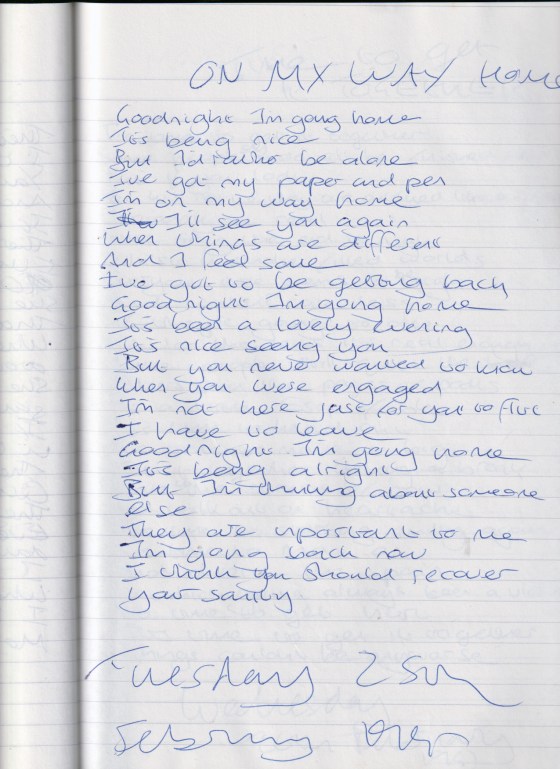 ON MY WAY HOME
Goodnight I'm going home
It's being nice
But I'd rather be alone
I've got my paper and pen
I'm on my way home
I'll see you again
When things are different
And I feel sane
I've got to be getting back
Goodnight I'm going home
It's been a lovely evening
It's nice seeing you
But you never wanted to know
When you were engaged
I'm not here just for you to flirt
I have to leave
Goodnight I'm going home
It's being alright
But I'm thinking about someone
else
They are important to me
I'm going back now
I think you should recover
your sanity
Tuesday 25th
February